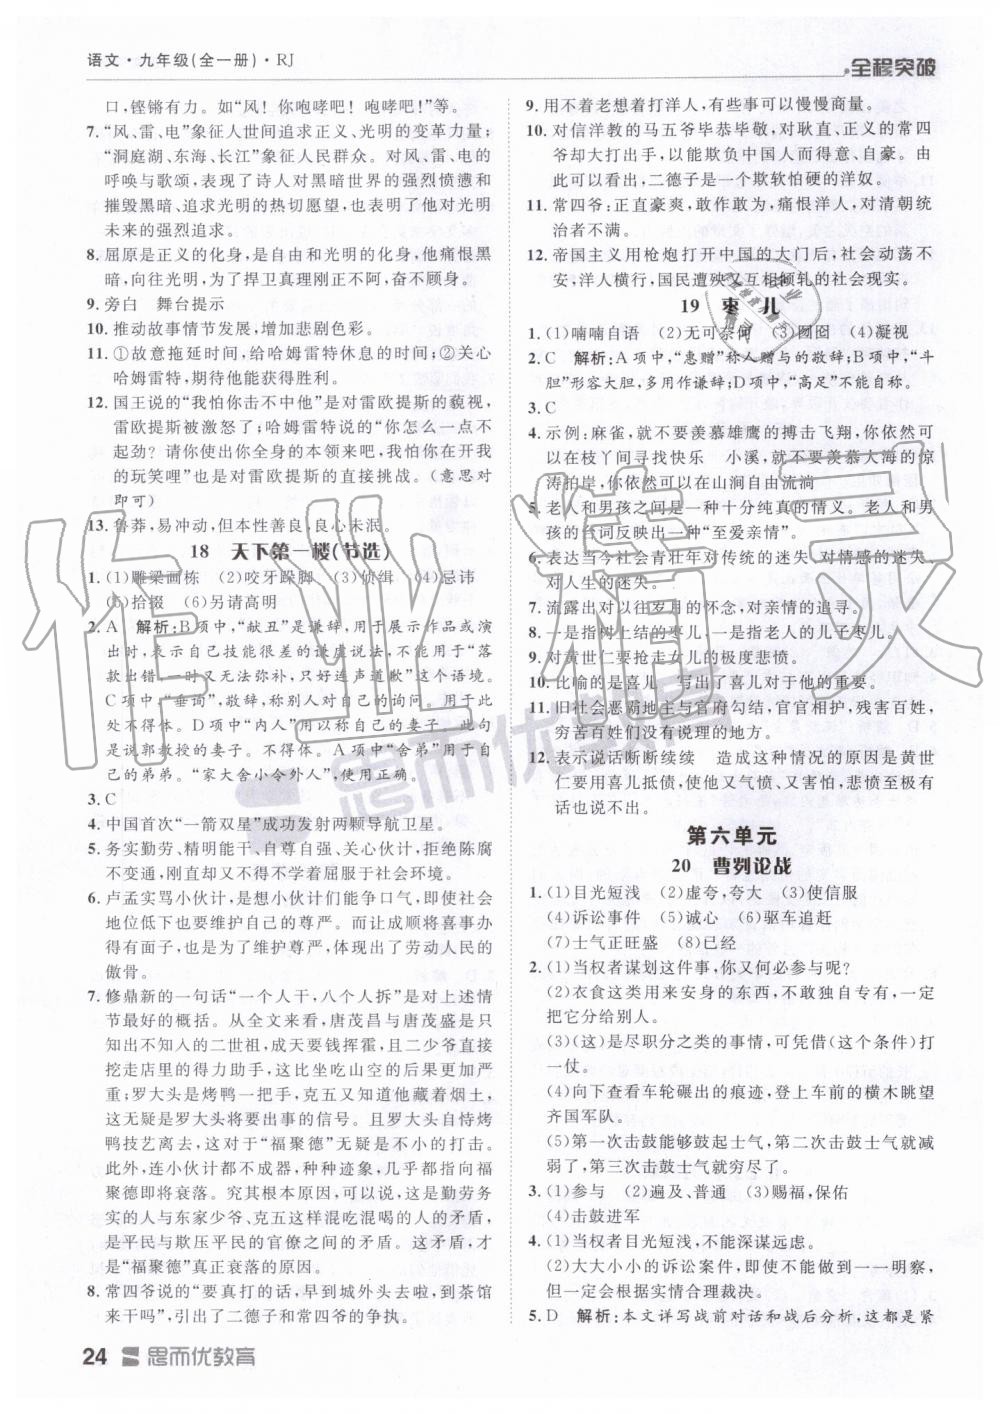 语文·九年级(全一册)·RJ
全程突破
口,铿锵有力。如“风！你咆哮吧！咆哮吧！”等。
7. “风、雷、电”象征人世间追求正义、光明的变革力量;
“洞庭湖、东海、长江”象征人民群众。对风、雷、电的
呼唤与歌颂,表现了诗人对黑暗世界的强烈愤懑和
摧毁黑暗、追求光明的热切愿望,也表明了他对光明
未来的强烈追求。
8. 屈原是正义的化身,是自由和光明的化身,他痛恨黑
暗,向往光明,为了捍卫真理刚正不阿,奋不顾身。
9. 旁白　舞台提示
10. 推动故事情节发展,增加悲剧色彩。
11. ①故意拖延时间,给哈姆雷特休息的时间;②关心
哈姆雷特,期待他能获得胜利。
12. 国王说的“我怕你击不中他”是对雷欧提斯的藐视,
雷欧提斯被激怒了;哈姆雷特说的“你怎么一点不
起劲？请你使出你全身的本领来吧,我怕你在开我
的玩笑哩”也是对雷欧提斯的直接挑战。(意思对
即可)
13. 鲁莽,易冲动,但本性善良,良心未泯。
18　天下第一楼(节选)
1. (1)雕梁画栋　(2)咬牙跺脚　(3)侦缉　(4)忌讳
(5)拾掇　(6)另请高明
2. A　解析:B项中,“献丑”是谦辞,用于展示作品或演
出时,表示自己技能很差的谦虚说法,不能用于“落
款出错,一时又无法弥补,只好连声道歉”这个语境。
C项中,“垂询”,敬辞,称别人对自己的询问。用于此
处不得体。D项中“内人”用以称自己的妻子。此句
是说郭教授的妻子。不得体。A项中“舍弟”用于称自
己的弟弟。“家大舍小令外人”,使用正确。
3. C
4. 中国首次“一箭双星”成功发射两颗导航卫星。
5. 务实勤劳、精明能干、自尊自强、关心伙计,拒绝陈腐
不变通,刚直却又不得不学着屈服于社会环境。
6. 卢孟实骂小伙计,是想小伙计们能争口气,即使社会
地位低下也要维护自己的尊严。而让成顺将喜事办
得有面子,也是为了维护尊严,体现出了劳动人民的
傲骨。
7. 修鼎新的一句话“一个人干,八个人拆”是对上述情
节最好的概括。从全文来看,唐茂昌与唐茂盛是只
知玩乐的二世祖,成天要钱挥霍,而二少爷更是直接
挖走店里的得力助手,这比坐吃山空的后果更加严
重;罗大头是烤鸭一把手,克五又指出他藏着烟土,
这无疑是罗大头将要出事的信号。且罗大头自恃烤
鸭技艺离去,这对于“福聚德”无疑是不小的打击。
此外,连小伙计都不成器,种种迹象,可以看出福
聚德即将衰落。究其根本原因,可以说,这是勤劳务
实的人与东家少爷、克五这样混吃混喝的人的矛盾,
是平民与欺压平民的官僚之间的矛盾。这矛盾,才
是“福聚德”真正衰落的原因。
8. 常四爷说的“要真打的话,早到城外头去啦,到茶馆
来干吗”,引出了二德子和常四爷的争执。
9. 用不着老想着打洋人,有些事可以慢慢商量。
10. 对信洋教的马五爷毕恭毕敬,对耿直、正义的常四
爷却大打出手,以能欺负中国人而得意、自豪。由
此可以看出,二德子是一个欺软怕硬的洋奴。
11. 常四爷:正直豪爽,敢作敢为,痛恨洋人,对清朝统
治者不满。
12. 帝国主义用枪炮打开中国的大门后,社会动荡不
安;洋人横行,国民遭殃又互相倾轧的社会现实。
19　枣　儿
1. (1)喃喃自语　(2)无可奈何　(3)囫囵　(4)凝视
2. C　解析:A项中,“惠赠”称人赠与的敬辞;B项中,“斗
胆”形容大胆,多用作谦辞;D项中,“高足”不能自称。
3. C
4. 示例:麻雀,就不要羡慕雄鹰的搏击飞翔,你依然可
以在枝丫间寻找快乐　小溪,就不要羡慕大海的惊
涛拍岸,你依然可以在山涧自由流淌
5. 老人和男孩之间是一种十分纯真的情义。老人和男
孩的台词反映出一种“至爱亲情”。
6. 表达当今社会青壮年对传统的迷失、对情感的迷失、
对人生的迷失。
7. 流露出对以往岁月的怀念,对亲情的追寻。
8. 一是指树上结的枣儿;一是指老人的儿子枣儿。
9. 对黄世仁要抢走女儿的极度悲愤。
10. 比喻的是喜儿　写出了喜儿对于他的重要性。
11. 旧社会恶霸地主与官府勾结,官官相护,残害百姓,
穷苦百姓们没有说理的地方。
12. 表示说话断断续续　造成这种情况的原因是黄世
仁要用喜儿抵债,使他又气愤、又害怕,悲愤至极有
话也说不出。
第六单元
20　曹刿论战
1. (1)目光短浅　(2)虚夸,夸大　(3)使信服
(4)诉讼事件　(5)诚心　(6)驱车追赶
(7)士气正旺盛　(8)已经
2. (1)当权者谋划这件事,你又何必参与呢?
(2)衣食这类用来安身的东西,不敢独自专有,一定
把它分给别人。
(3)(这)是尽职分之类的事情,可凭借(这个条件)打
一仗。
(4)向下查看车轮碾出的痕迹,登上车前的横木眺望
齐国军队。
(5)第一次击鼓能够鼓起士气,第二次击鼓士气就减
弱了,第三次击鼓士气就穷尽了。
3. (1)参与　(2)遍及、普通　(3)赐福,保佑
(4)击鼓进军
4. (1)当权者目光短浅,不能深谋远虑。
(2)大大小小的诉讼案件,即使不能一一明察,
但一定会根据实情合理裁决。
5. D　解析:本文详写战前对话和战后分析,这都是紧
24 思而优教育
思而优教育
作业精灵